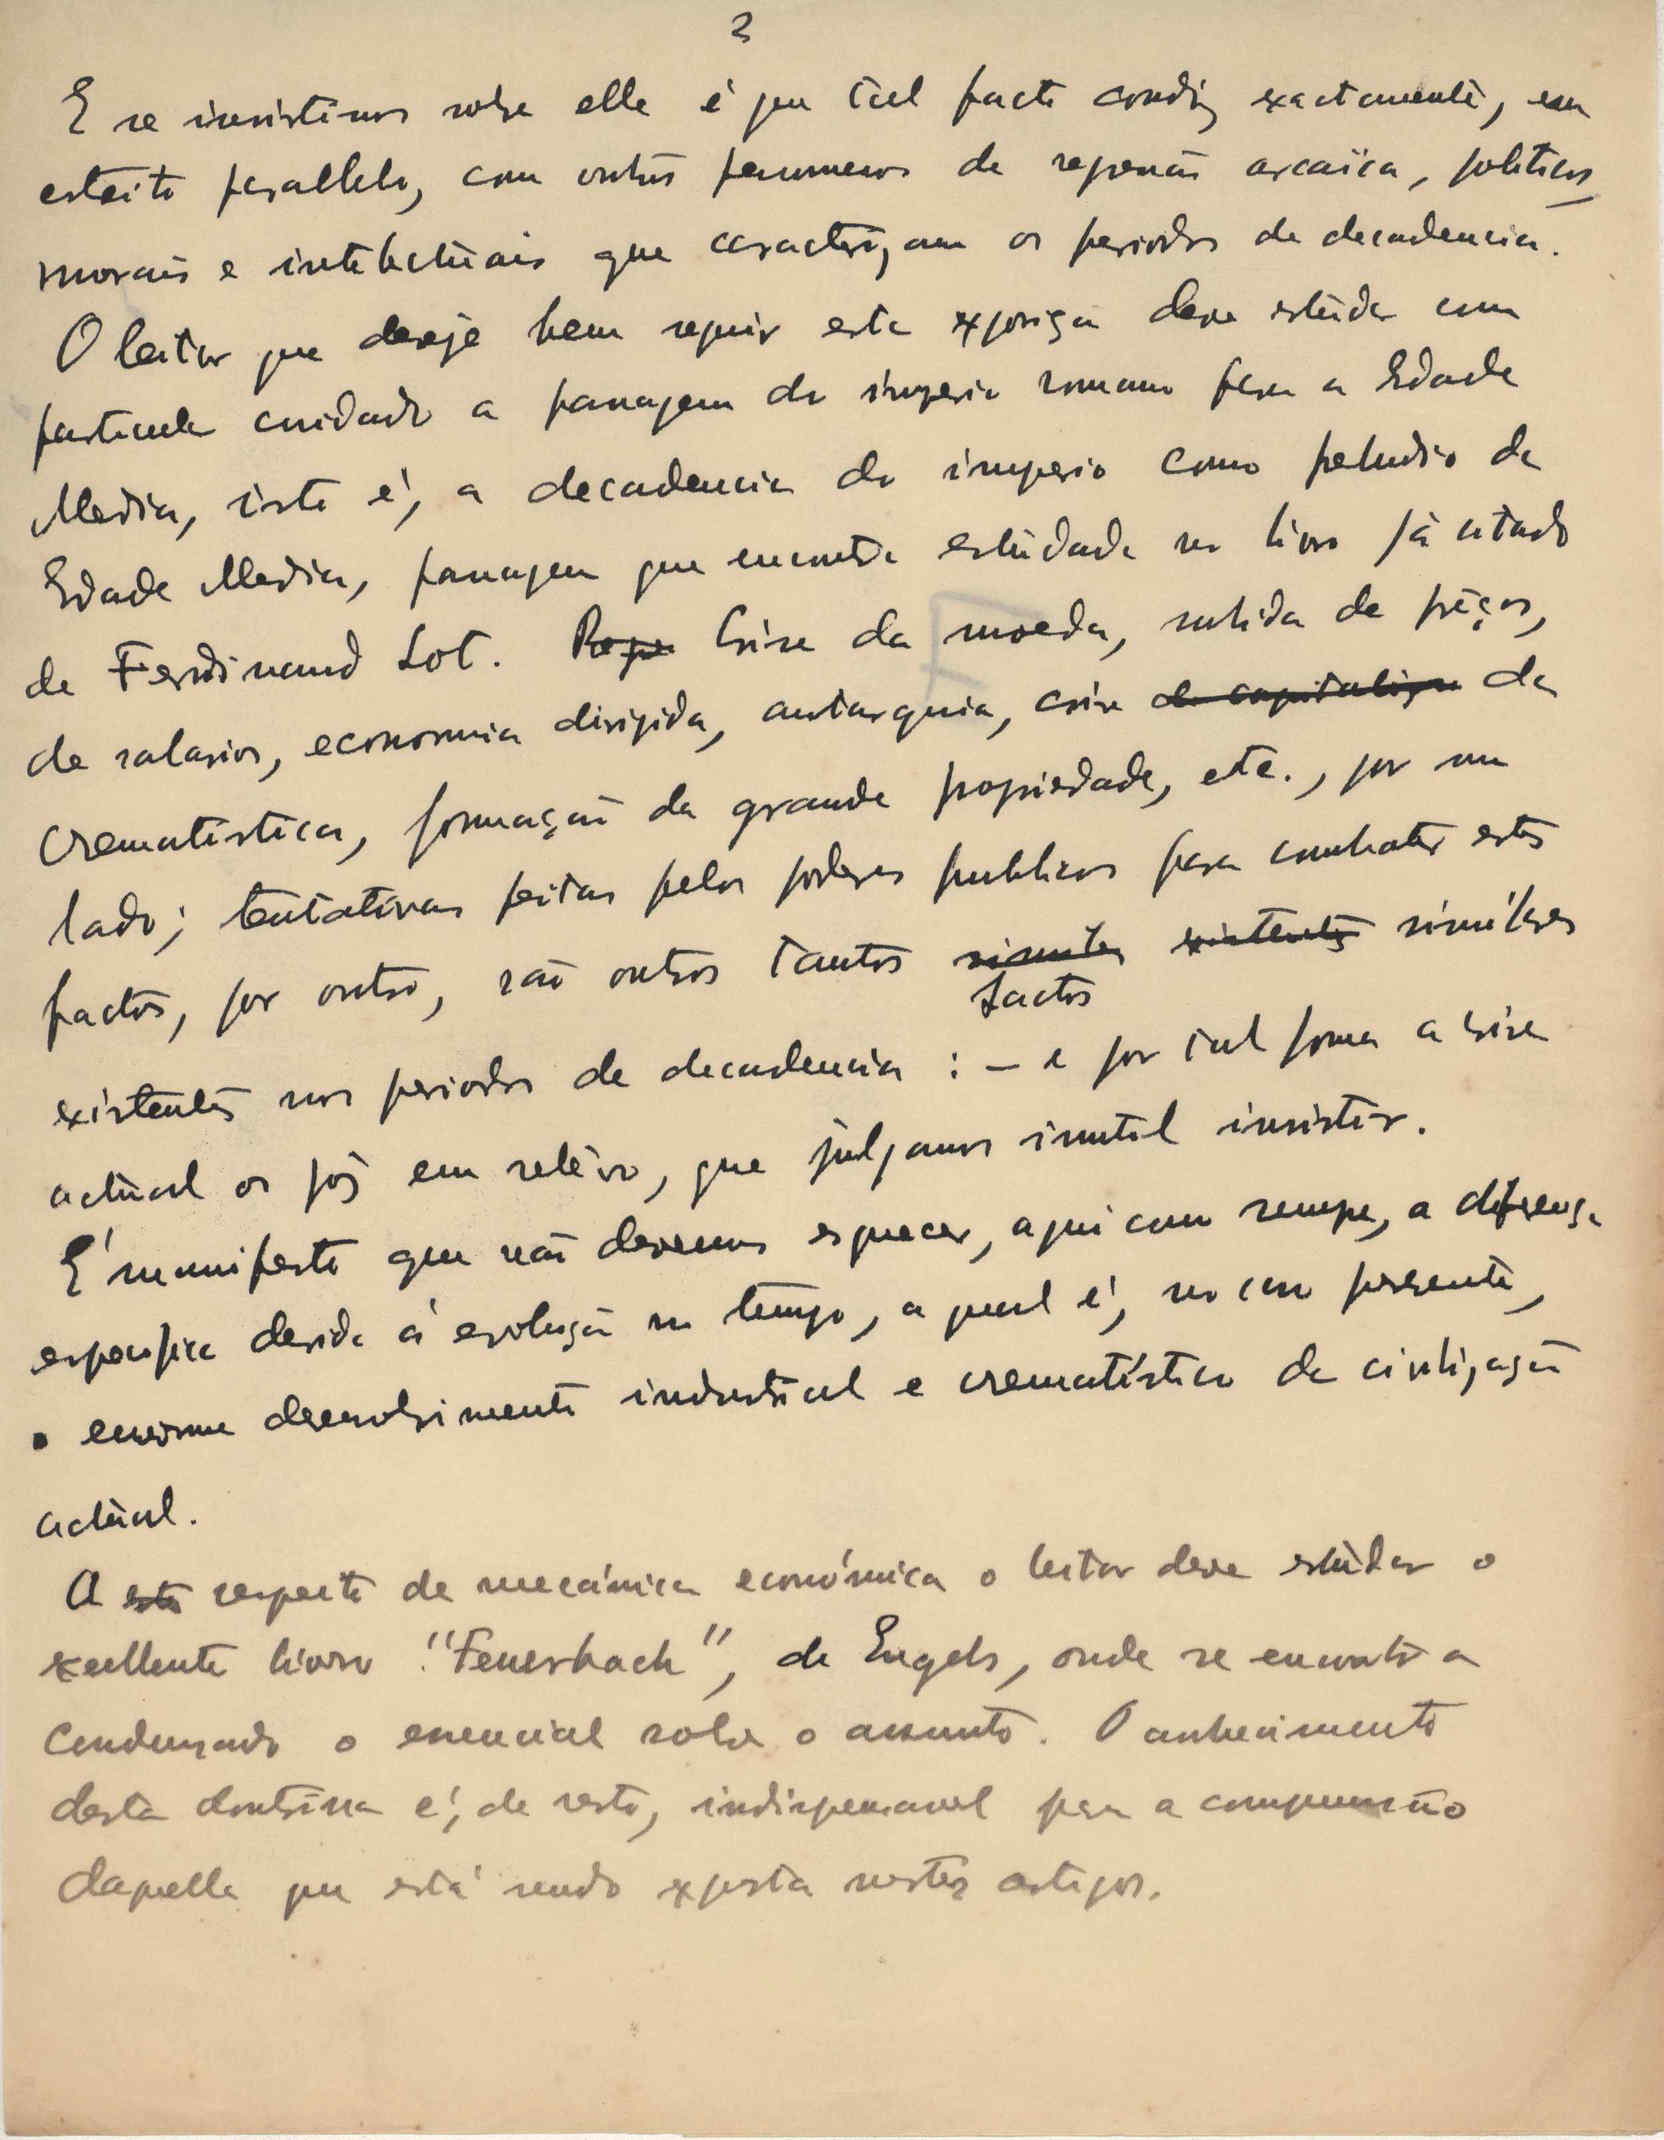 3
E se insistimos sobre elle é que tal facto condiz exactamente, em
estreito parallelo, com outros fenomenos de regressão arcaïca, politicos,
morais e intelectuais que caracterizam os periodos de decadencia.
O leitor que deseje bem seguir esta exposição deve estudar com
particular cuidado a passagem do imperio romano para a Edade
Media, isto é, a decadencia do imperio como preludio da
Edade Media, passagem que encontra estudada no livro já citado
de Ferdinand Lot. Crise da moeda, subida de preços,
de salarios, economia dirigida, autarquia, crise da
crematistica, formação da grande propriedade, etc., por um
lado; tentativas feitas pelos poderes publicos para combater estes
factos, por outro, são outros tantos similes existentes similares
factos
existentes nos periodos de decadencia : – e por tal forma a crise
actual os põz em relêvo, que julgamos inutil insistir.
É manifesto que não devemos esquecer, aqui como sempre, a diferença
especifica devida á evolução no tempo, a qual é, no caso presente,
o enorme desenvolvimento industrial e crematístico da civilização
actual.
A este respeito de mecánica económica o leitor deve estudar o
excellente livro "Feuerbach", de Engels, onde se encontra
condensado o essencial sobre o assunto. O conhecimento
desta doutrina é, de resto, indispensavel para a compreensão
daquella que está sendo exposta nestes artigos.